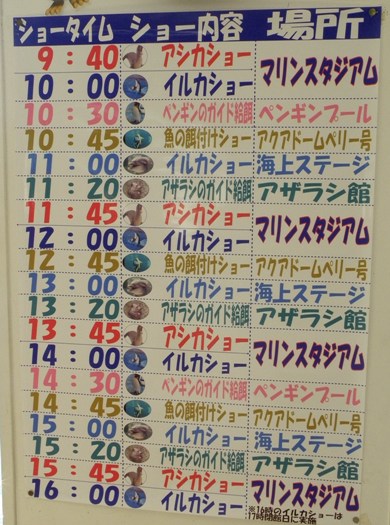 ショータイム ショー内容 場所
9:40 アシカショー
マリンスタジアム
10:00 イルカショー
10:30 ペンギンのガイド給餌 ペンギンプール
10:45 魚の餌付けショー アクアドームペリー号
11:00 イルカショー 海上ステージ
11:20 アザラシのガイド給餌 アザラシ館
11:45 アシカショー
マリンスタジアム
12:00 イルカショー
12:45 魚の餌付けショー アクアドームペリー号
13:00 イルカショー 海上ステージ
13:20 アザラシのガイド給餌 アザラシ館
13:45 アシカショー
マリンスタジアム
14:00 イルカショー
14:30 ペンギンのガイド給餌 ペンギンプール
14:45 魚の餌付けショー アクアドームペリー号
15:00 イルカショー 海上ステージ
15:20 アザラシのガイド給餌 アザラシ館
15:45 アシカショー
マリンスタジアム
16:00 イルカショー
※16時のイルカショーは
17時閉館日に実施